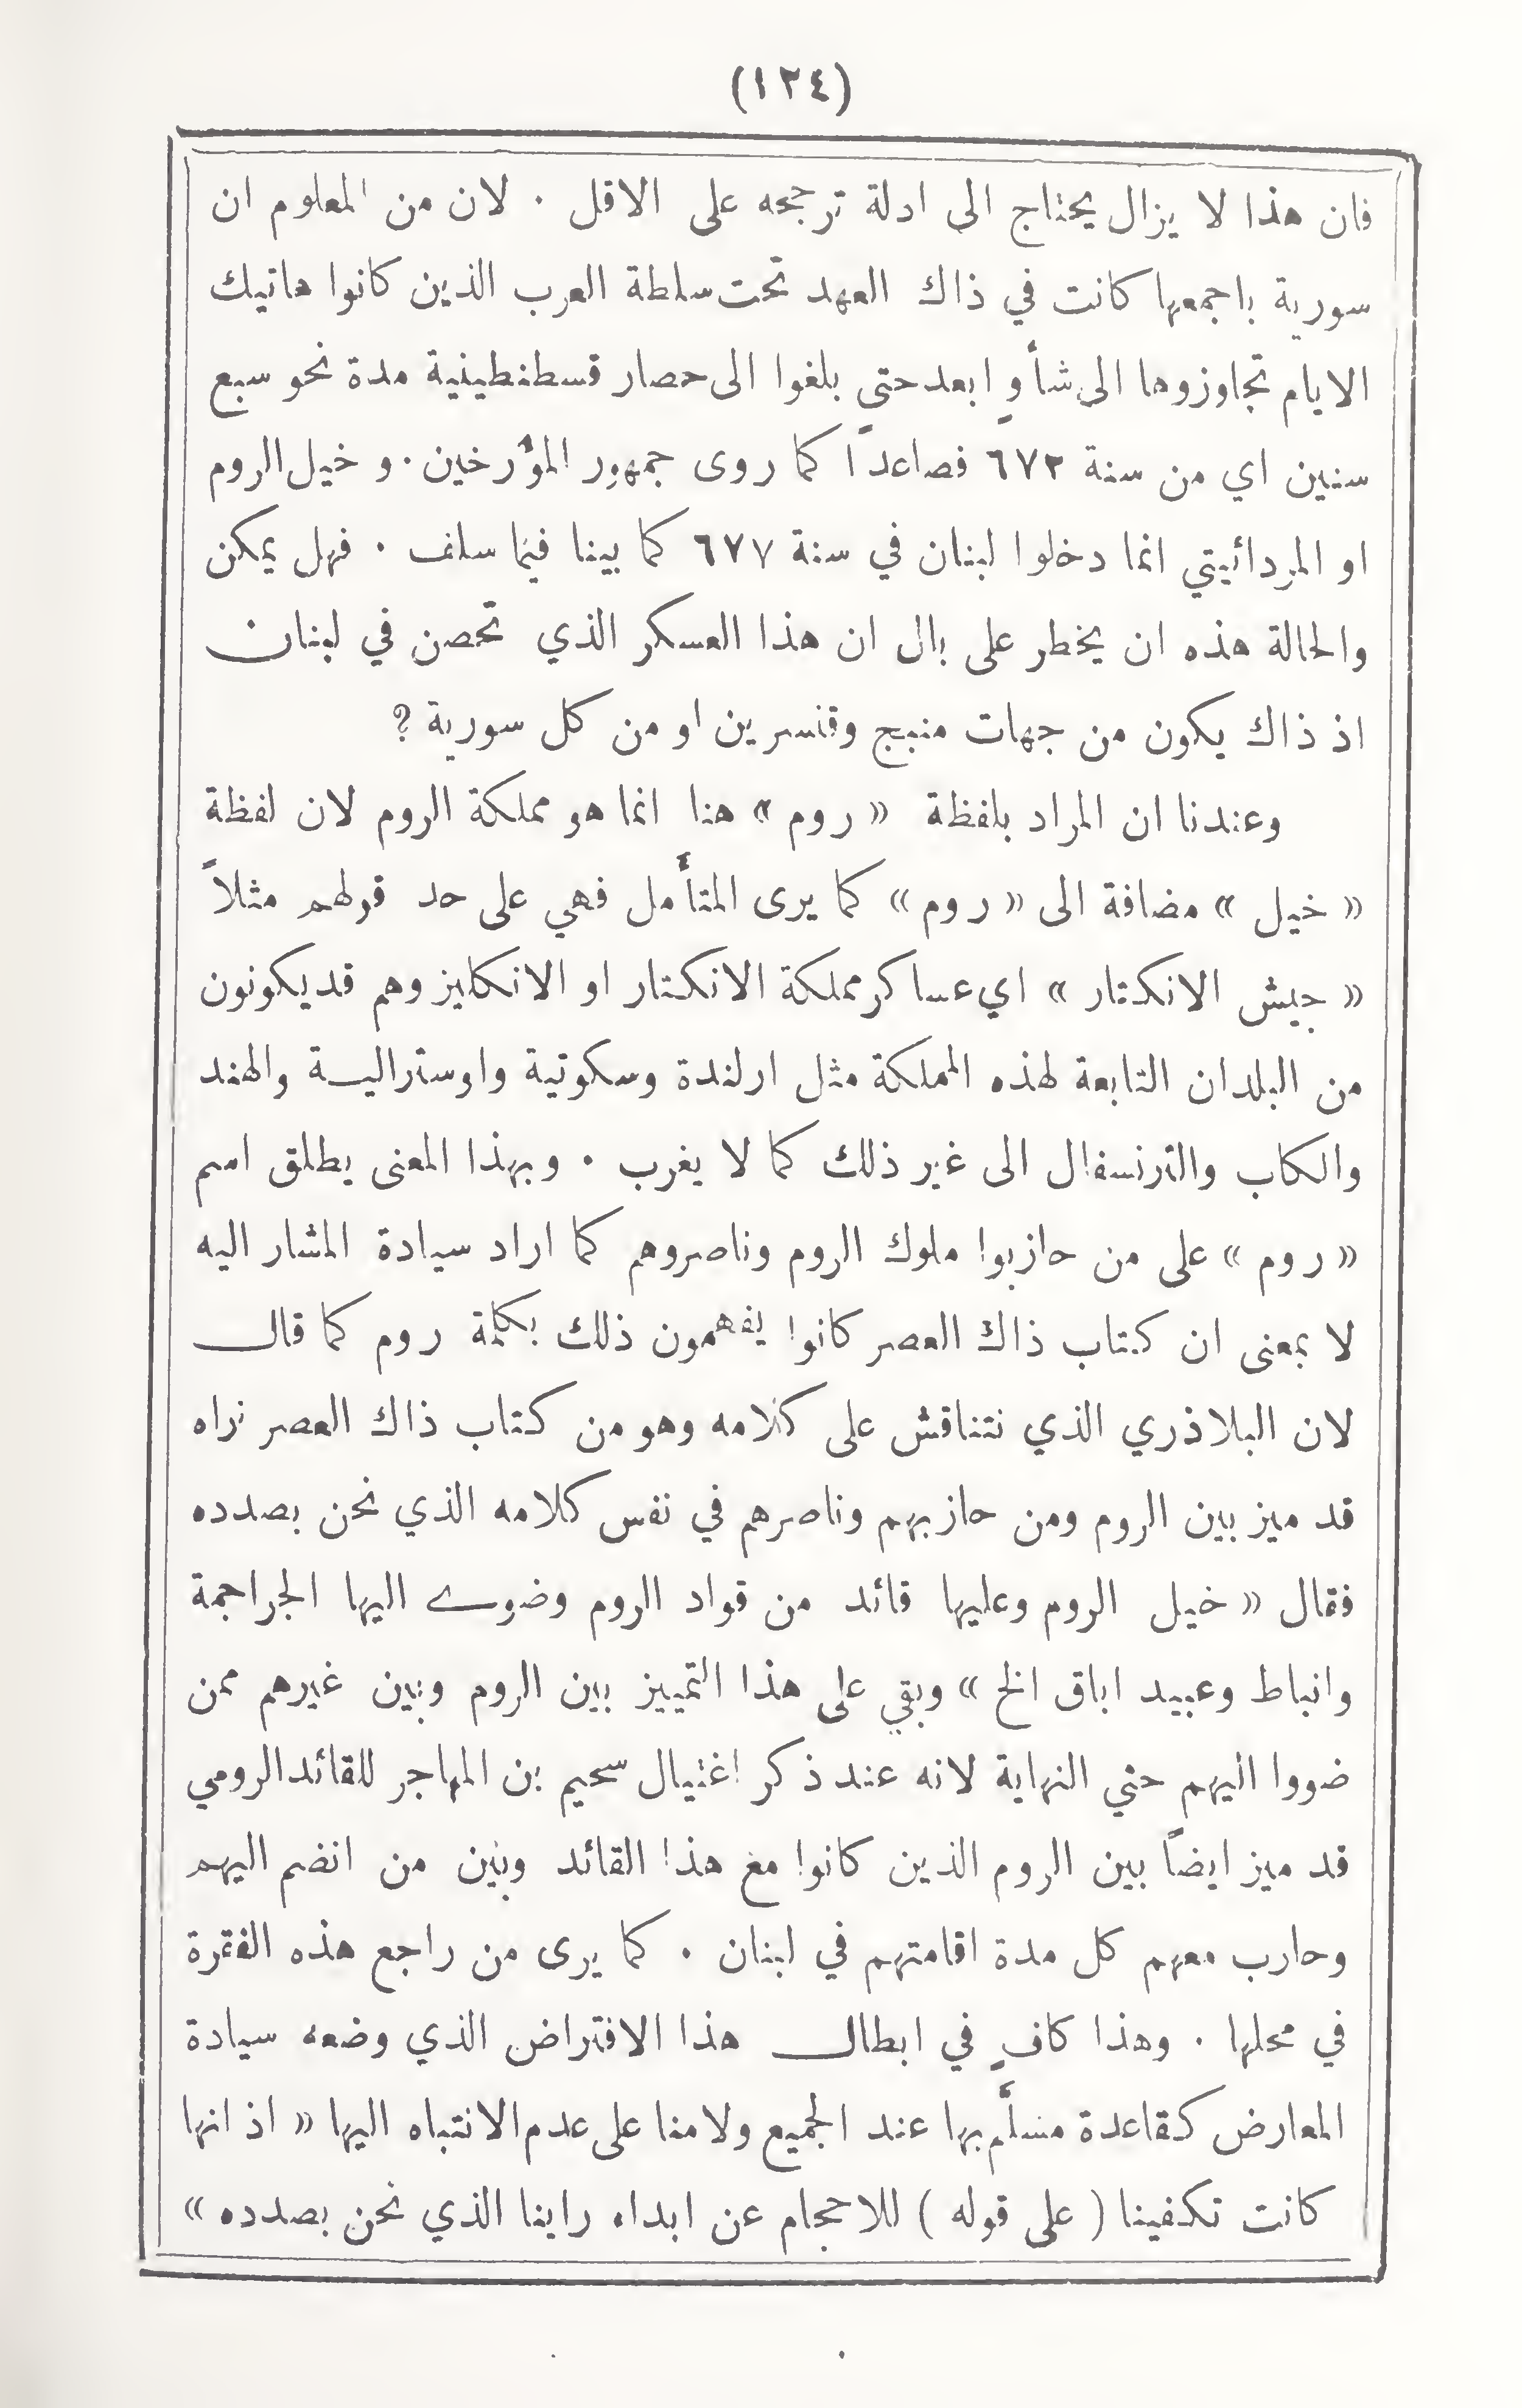 (١٢٤)
فان هذا لا يزال يحتاج الى ادلة ترجحه على الاقل . لان من المعلوم ان
سورية باجمعها كانت في ذاك العهد تحت سلطة العرب الذين كانوا هاتيك
الايام تجاوزوها الى شأوٍ ابعد حتى بلغوا الى حصار قسطنطينية مدة نحو سبع
سنين اي من سنة ٦٧٢ فصاعداً كما روى جمهور المؤرخين . و خيل الروم
او المردائيتي انما دخلوا لبنان في سنة ٦٧٧ كما بينا فيما سلف . فهل يمكن
والحالة هذه ان يخطر على بال ان هذا العسكر الذي تحصن في لبنان
اذ ذاك يكون من جهات منبج وقنسرين او من كل سورية ؟
وعندنا ان المراد بلفظة « روم » هنا انما هو مملكة الروم لان لفظة
« خيل » مضافة الى « روم » كما يرى المتأمل فهي على حد قولهم مثلاً
« جيش الانكتار » اي عساكر مملكة الانكتار او الانكليز وهم قد يكونون
من البلدان التابعة لهذه المملكة مثل ارلندة وسكوتية واوستراليـة والهند
والكاب والترنسفال الى غير ذلك كما لا يغرب . وبهذا المعنى يطلق اسم
« روم » على من حازبوا ملوك الروم وناصروهم كما اراد سيادة المشار اليه
لا بمعنى ان كتاب ذاك العصر كانوا يفهمون ذلك بكلمة روم كما قال
لان البلاذري الذي نتناقش على كلامه وهو من كتاب ذاك العصر نراه
قد ميز بين الروم ومن حازبهم وناصرهم في نفس كلامه الذي نحن بصدده
فقال « خيل الروم وعليها قائد من قواد الروم وضوے اليها الجراجمة
وانباط وعبيد اباق الخ » وبقي على هذا التمييز بين الروم وبين غيرهم ممن
ضووا اليهم حتى النهاية لانه عند ذكر اغتيال سحيم بن المهاجر للقائد الرومي
قد ميز ايضاً بين الروم الذين كانوا مع هذا القائد وبين من انضم اليهم
وحارب معهم كل مدة اقامتهم في لبنان . كما يرى من راجع هذه الفقرة
في محلها . وهذا كافٍ في ابطال هذا الافتراض الذي وضعه سيادة
المعارض كقاعدة مسلَّم بها عند الجميع ولامنا على عدم الانتباه اليها « اذ انها
كانت تكفينا ( على قوله ) للاحجام عن ابداء راينا الذي نحن بصدده »